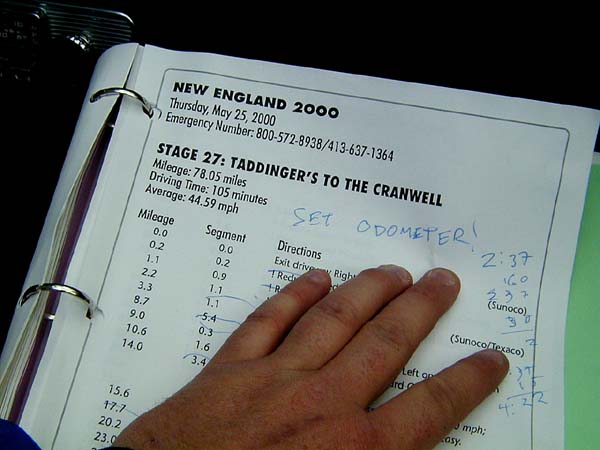 NEW ENGLAND 2000
Thursday, May 25, 2000
Emergency Number: 800-572-8938/413-637-1364
STAGE 27: TADDINGER'S TO THE CRANWELL
Mileage: 78.05 miles
Driving Time: 105 minutes
Average: 44.59 mph
SET ODOMETER!
Mileage Segment Directions
0.0 0.0 Exit driveway Right 2:37
0.2 0.2
1.1 0.9 237
2.2 1.1 (Sunoco)
3.3 1.1
8.7 5.4
9.0 0.3 (Sunoco/Texaco)
10.6 1.6 Left on
14.0 3.4
4:22
15.6 mph;
17.7
20.2
23.0